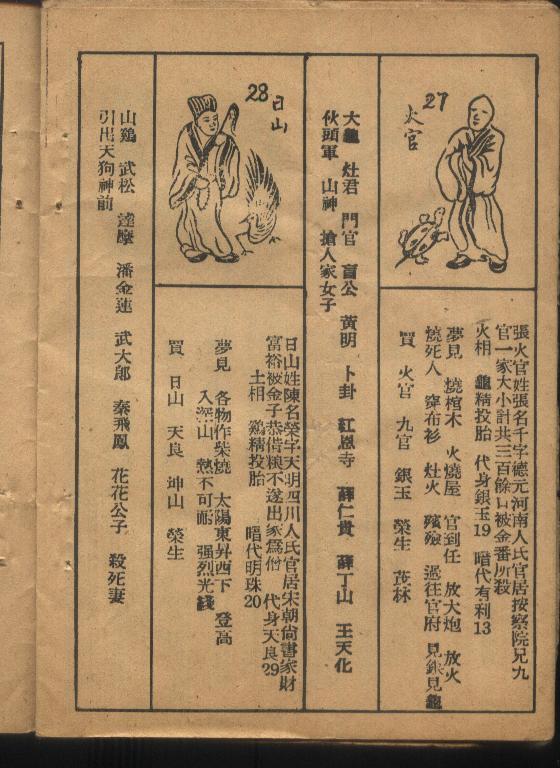 27
火官
張火官姓張名千字德元河南人氏官居按察院兄九
官一家大小計共三百餘口被金番所殺
火相 龜精投胎 代身銀玉19 暗代有利13
夢見 燒棺木 火燒屋 官到任 放大炮 放火
燒死人 穿布衫 灶火 殯殮 過往官府 見銀見龜
買 火官 九官 銀玉 榮生 茂林
大龜 灶君 門官 盲公 黃明 卜卦 紅恩寺 薛仁貴 薛丁山 王天化
伙頭軍 山神 搶人家女子
28
日山
日山姓陳名榮字天明四川人氏官居宋朝尚書家財
富裕被金子恭借糧不遂出家為僧 代身天良29
土相 鷄精投胎 暗代明珠20
夢見 各物作柴燒 太陽東昇西下 登高
入深山 熱不可耐 强烈光綫
買 日山 天良 坤山 榮生
山鷄 武松 達摩 潘金蓮 武大郎 秦飛鳳 花花公子 殺死妻
引出天狗神前